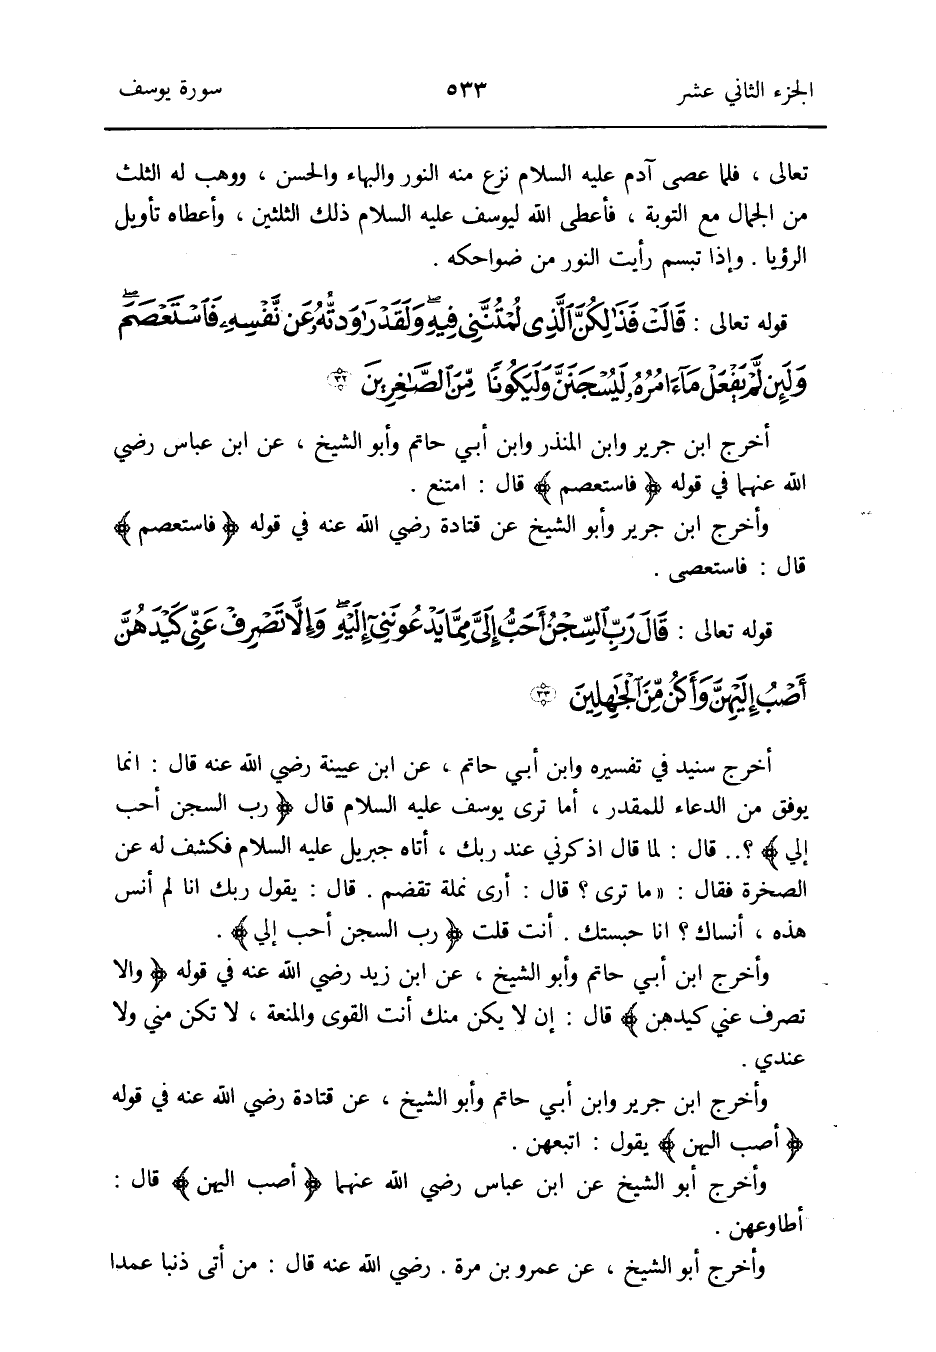 الجزء الثاني عشر ٥٣٣ سورة يوسف
تعالى ، فلما عصى آدم عليه السلام نزع منه النور والبهاء والحسن ، ووهب له الثلث
من الجمال مع التوبة ، فأعطى الله ليوسف عليه السلام ذلك الثلثين ، وأعطاه تأويل
الرؤيا . وإذا تبسم رأيت النور من ضواحكه .
قوله تعالى : قَالَتْ فَذَٰلِكُنَّ ٱلَّذِى لُمْتُنَّنِى فِيهِ ۖ وَلَقَدْ رَٰوَدتُّهُۥ عَن نَّفْسِهِۦ فَٱسْتَعْصَمَ ۖ
وَلَئِن لَّمْ يَفْعَلْ مَآ ءَامُرُهُۥ لَيُسْجَنَنَّ وَلَيَكُونًا مِّنَ ٱلصَّٰغِرِينَ ۝٣٢
أخرج ابن جرير وابن المنذر وابن أبي حاتم وأبو الشيخ ، عن ابن عباس رضي
الله عنهما في قوله ﴿ فاستعصم ﴾ قال : امتنع .
وأخرج ابن جرير وأبو الشيخ عن قتادة رضي الله عنه في قوله ﴿ فاستعصم ﴾
قال : فاستعصى .
قوله تعالى : قَالَ رَبِّ ٱلسِّجْنُ أَحَبُّ إِلَىَّ مِمَّا يَدْعُونَنِىٓ إِلَيْهِ ۖ وَإِلَّا تَصْرِفْ عَنِّى كَيْدَهُنَّ
أَصْبُ إِلَيْهِنَّ وَأَكُن مِّنَ ٱلْجَٰهِلِينَ ۝٣٣
أخرج سنيد في تفسيره وابن أبي حاتم ، عن ابن عيينة رضي الله عنه قال : انما
يوفق من الدعاء للمقدر ، أما ترى يوسف عليه السلام قال ﴿ رب السجن أحب
إلي ﴾ ؟.. قال : لما قال اذكرني عند ربك ، أتاه جبريل عليه السلام فكشف له عن
الصخرة فقال : « ما ترى ؟ قال : أرى نملة تقضم . قال : يقول ربك انا لم أنس
هذه ، أنساك ؟ انا حبستك . أنت قلت ﴿ رب السجن أحب إلي ﴾ .
وأخرج ابن أبي حاتم وأبو الشيخ ، عن ابن زيد رضي الله عنه في قوله ﴿ والا
تصرف عني كيدهن ﴾ قال : إن لا يكن منك أنت القوى والمنعة ، لا تكن مني ولا
عندي .
وأخرج ابن جرير وابن أبي حاتم وأبو الشيخ ، عن قتادة رضي الله عنه في قوله
﴿ أصب اليهن ﴾ يقول : اتبعهن .
وأخرج أبو الشيخ عن ابن عباس رضي الله عنهما ﴿ أصب اليهن ﴾ قال :
أطاوعهن .
وأخرج أبو الشيخ ، عن عمرو بن مرة . رضي الله عنه قال : من أتى ذنبا عمدا